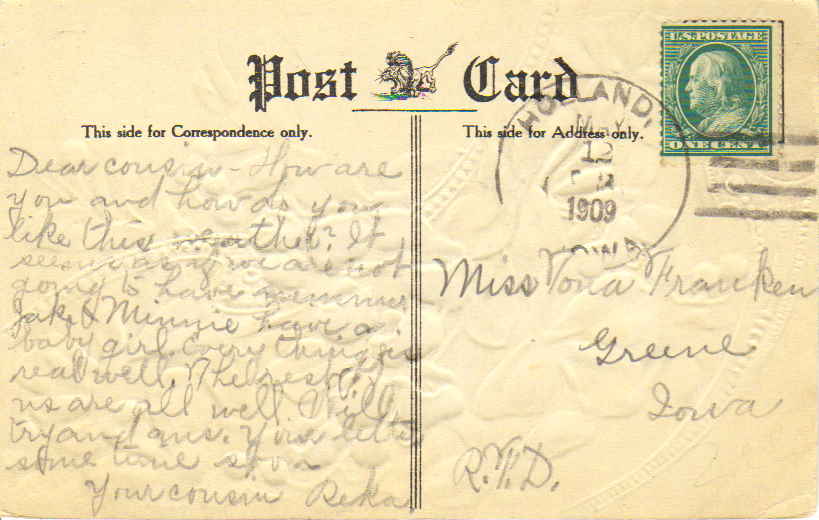 Post Card
This side for Correspondence only.
This side for Address only.
U.S. POSTAGE
ONE CENT
HOLLAND,
MAY
12
1909
IOWA
Dear cousin - How are
you and how do you
like this weather? It
seems as if we are not
going to have summer
Jake & Minnie have a
baby girl. Every thing is
real well. The rest of
us are all well. Will
try and ans. your letter
some time soon
Your cousin Reka
Miss Vona Franken
Greene
Iowa
R.F.D.